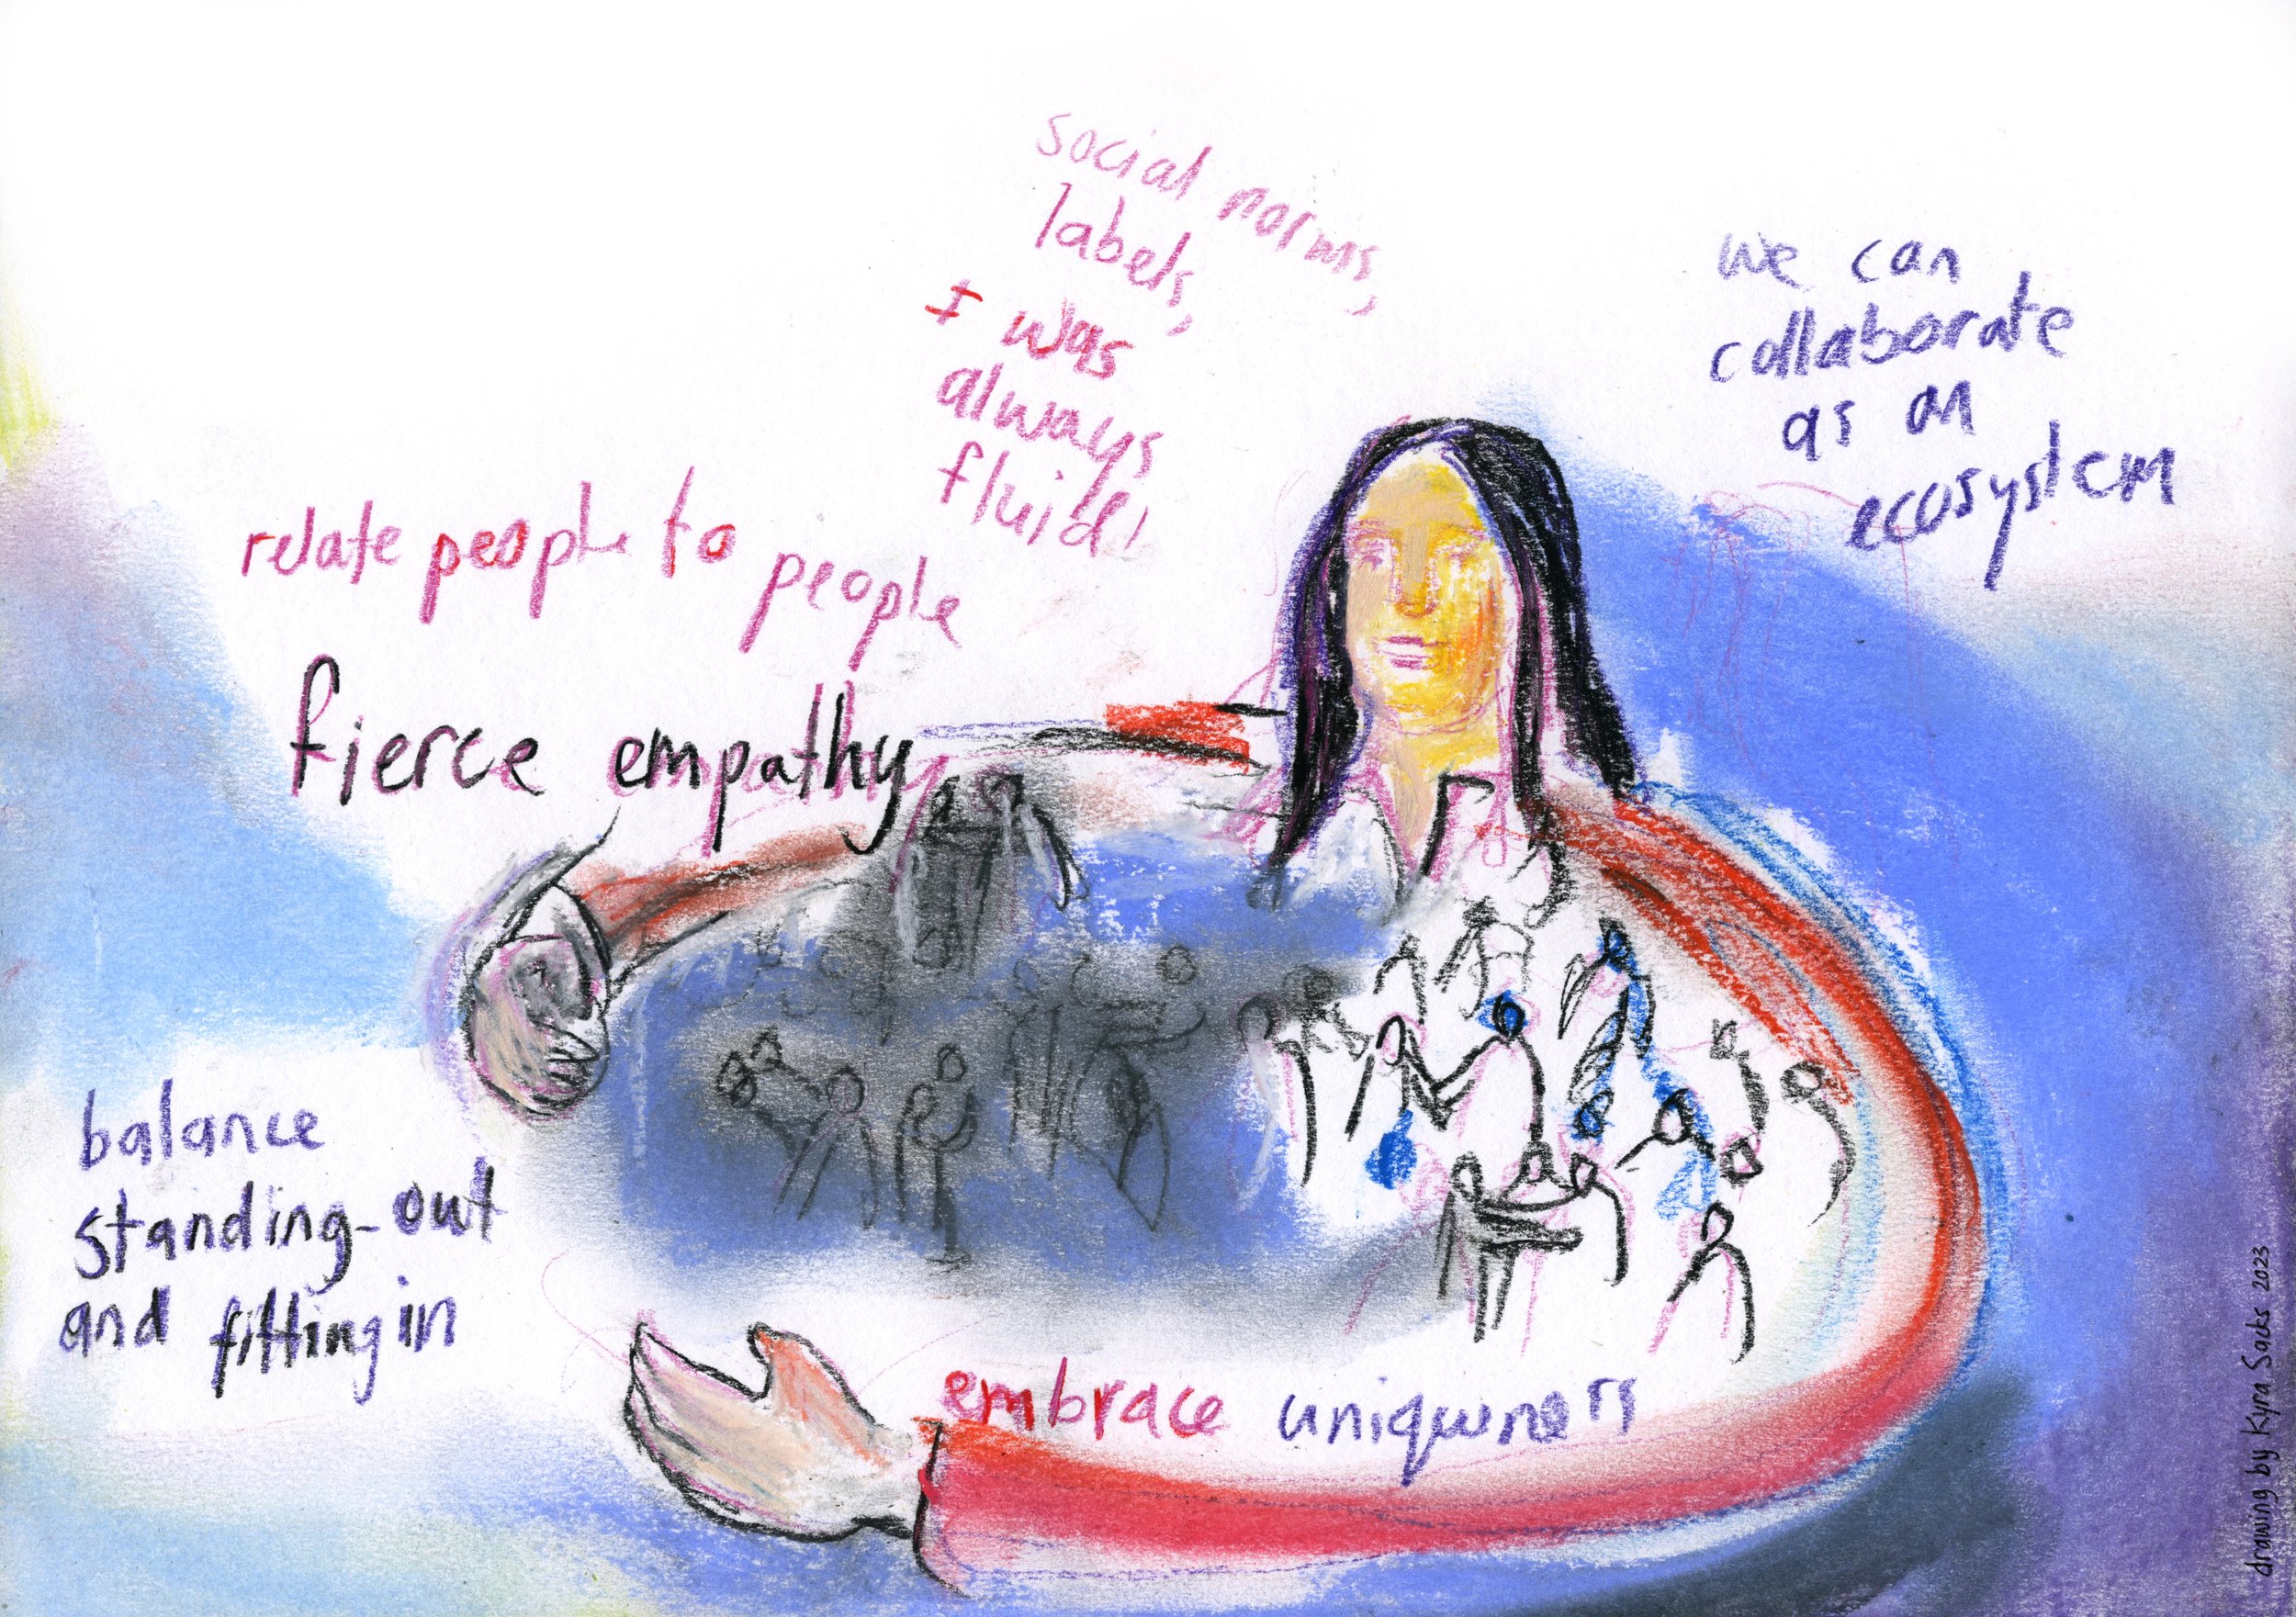 social norms,
labels,
I was
always
fluid!
we can
collaborate
as an
ecosystem
relate people to people
fierce empathy
balance
standing-out
and fitting in
embrace uniqueness
drawing by Kyra Sacks 2023